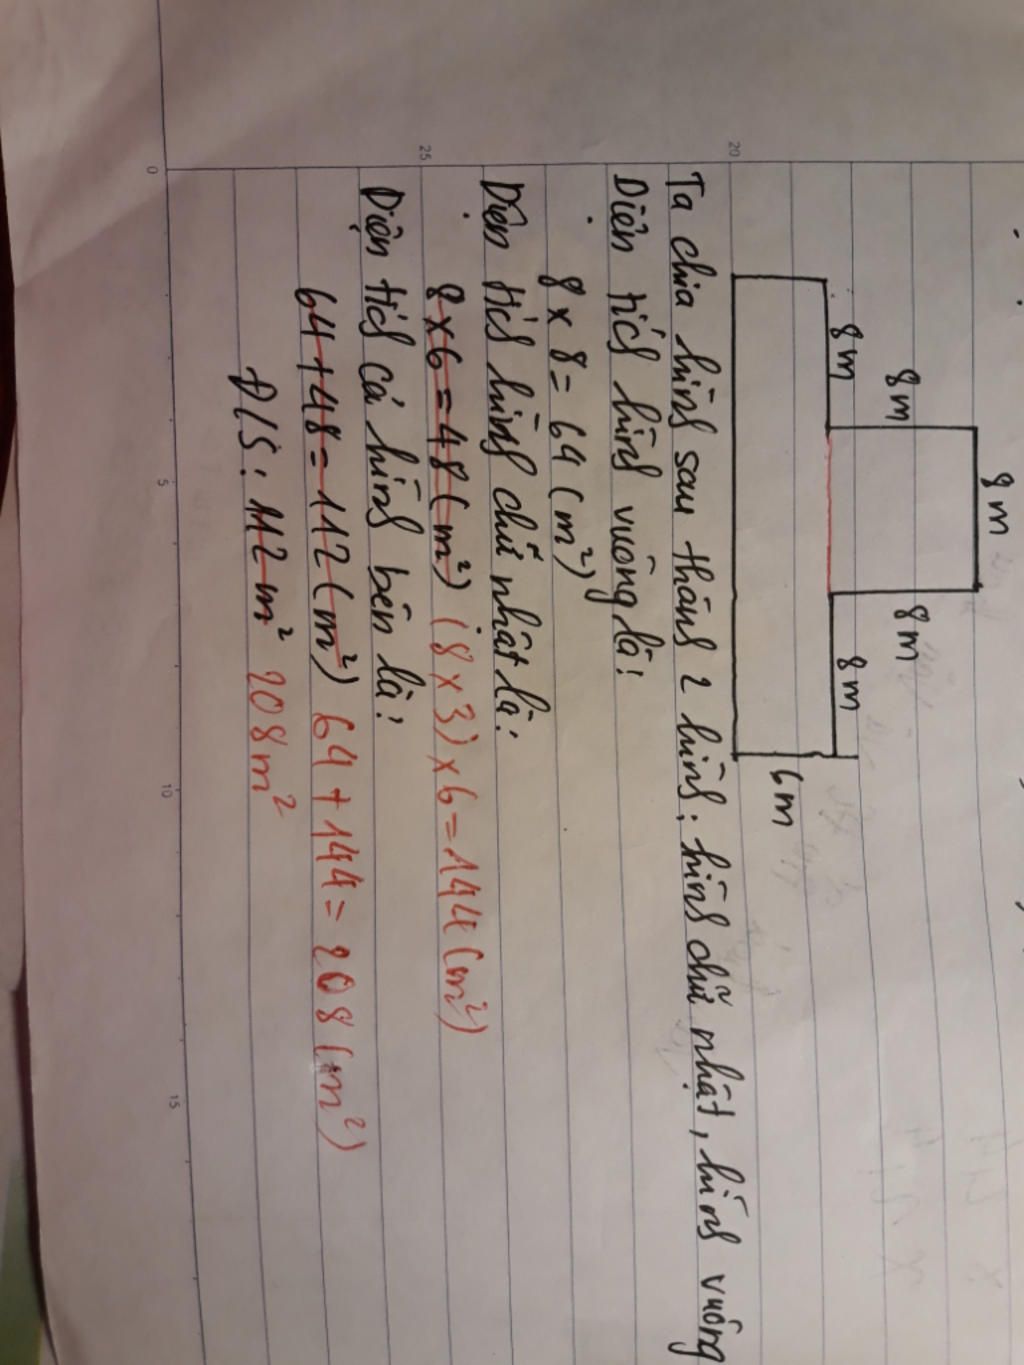 8m
8m
8m
8m
8m
6m
Ta chia hình sau thành 2 hình: hình chữ nhật, hình vuông
Diện tích hình vuông là:
8 x 8 = 64 (m²)
Diện tích hình chữ nhật là:
8 x 6 = 48 (m²) (8 x 3) x 6 = 144 (m²)
Diện tích cả hình bên là:
64 + 48 = 112 (m²) 64 + 144 = 208 (m²)
Đ/S: 112 m² 208 m²
20
25
0
5
10
15